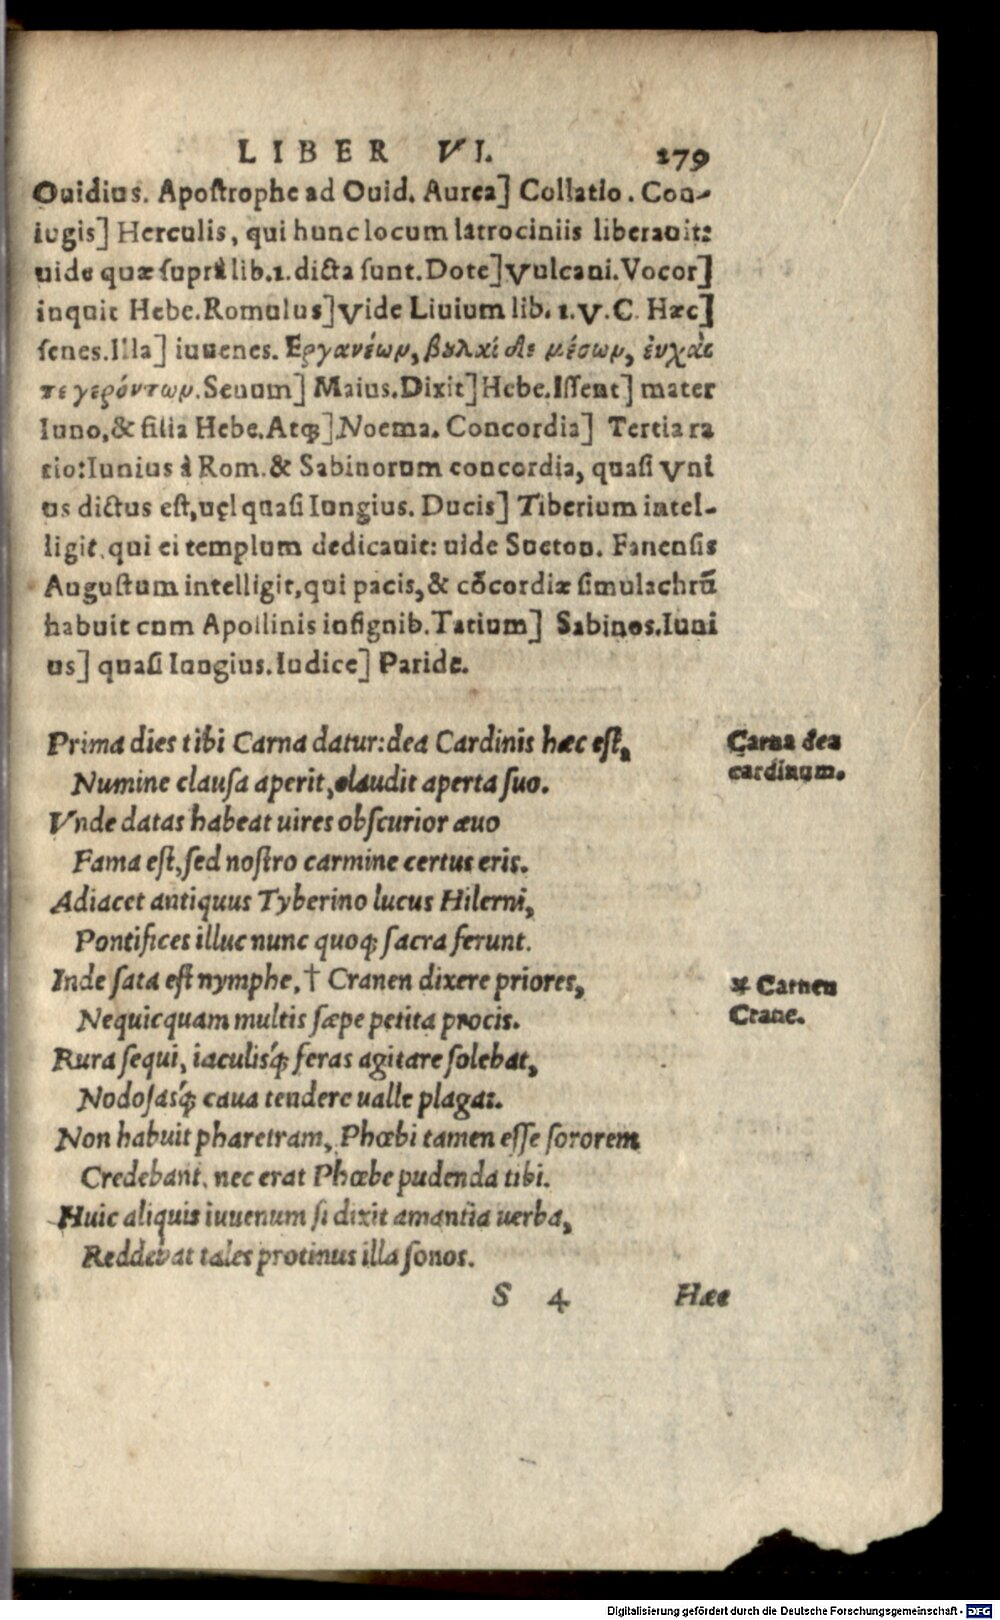 LIBER VI. 279
Ouidius. Apostrophe ad Ouid. Aurea] Collatio. Con-
iugis] Herculis, qui hunc locum latrociniis liberauit:
uide quæ suprà lib. 1. dicta sunt. Dote] Vulcani. Vocor]
inquit Hebe. Romulus] Vide Liuium lib. 1. V. C. Hæc]
senes. Illa] iuuenes. Εργανέωμ, βȣλαὶ δε μέσωμ, ἐυχὰι
τε γερόντωμ. Seuum] Maius. Dixit] Hebe. Issent] mater
Iuno, & filia Hebe. Atq;] Noema. Concordia] Tertia ra
tio: Iunius à Rom. & Sabinorum concordia, quasi Vni
us dictus est, uel quasi Iungius. Ducis] Tiberium intel-
ligit, qui ei templum dedicauit: uide Sueton. Fanensis
Augustum intelligit, qui pacis, & cõcordiæ simulachrũ
habuit cum Apollinis insignib. Tatium] Sabinos. Iuni
us] quasi Iungius. Iudice] Paride.
Prima dies tibi Carna datur: dea Cardinis hæc est, Carna dea
Numine clausa aperit, claudit aperta suo. cardinum.
Vnde datas habeat uires obscurior æuo
Fama est, sed nostro carmine certus eris.
Adiacet antiquus Tyberino lucus Hilerni,
Pontifices illuc nunc quoq; sacra ferunt.
Inde sata est nymphe, † Cranen dixere priores, * Carnen
Nequicquam multis sæpe petita procis. Crane.
Rura sequi, iaculisq́; feras agitare solebat,
Nodosasq́; caua tendere ualle plagas.
Non habuit pharetram, Phœbi tamen esse sororem
Credebant, nec erat Phœbe pudenda tibi.
Huic aliquis iuuenum si dixit amantia uerba,
Reddebat tales protinus illa sonos.
S 4 Hæc
Digitalisierung gefördert durch die Deutsche Forschungsgemeinschaft - DFG